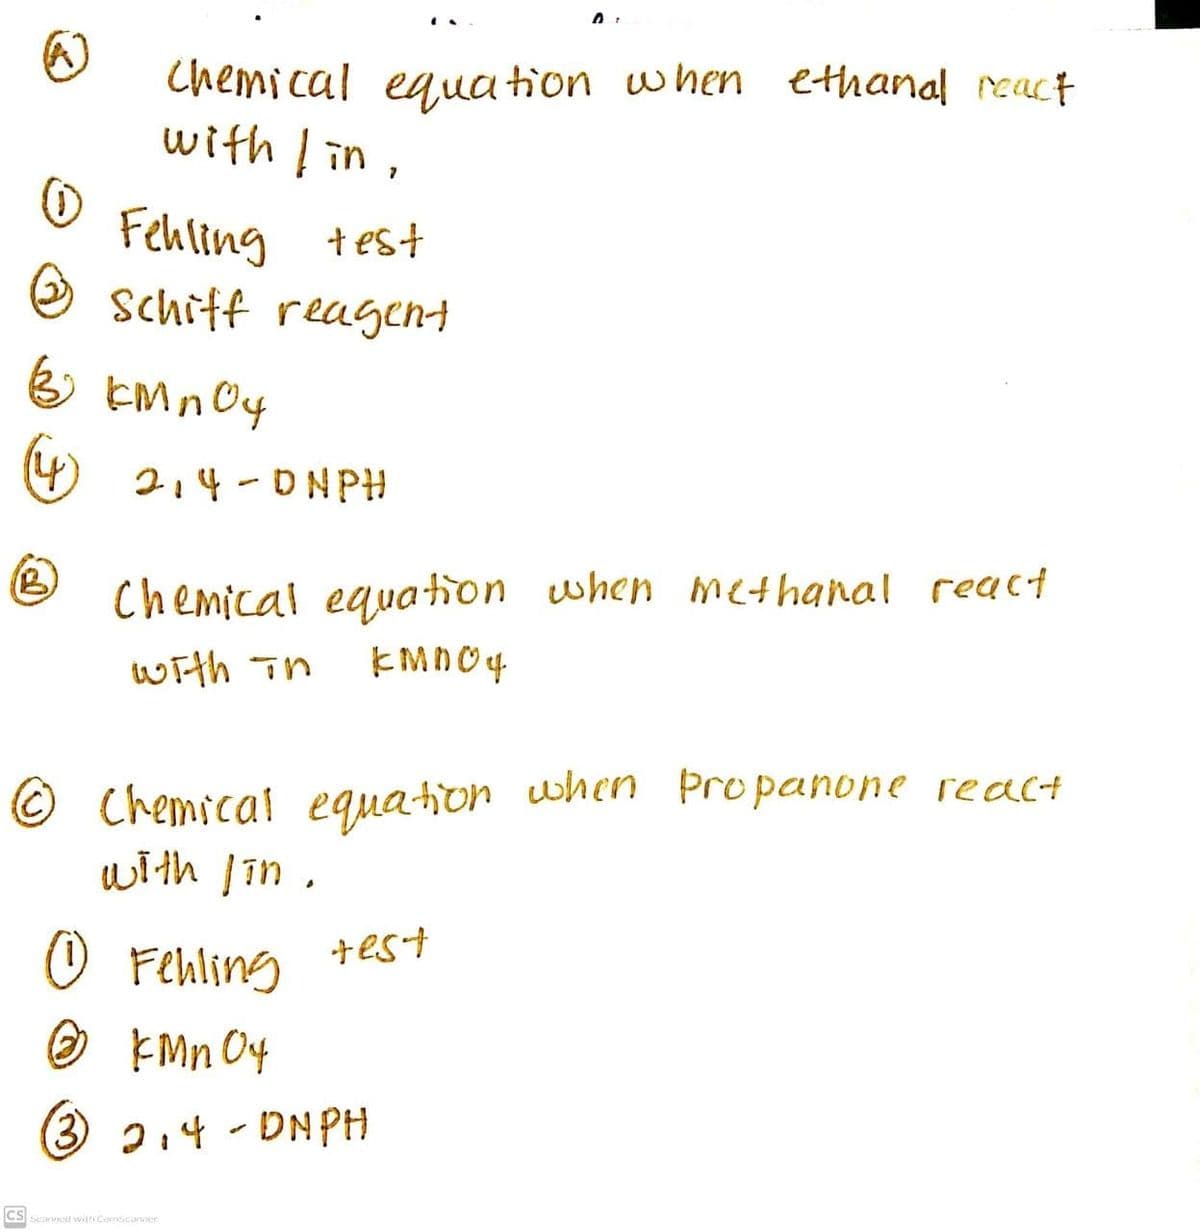 (A) Chemical equation when ethanal react
with / in ,
(1) Fehling test
(2) Schiff reagent
(3) KMnO4
(4) 2,4-DNPH
(B) Chemical equation when methanal react
with in KMnO4
(C) Chemical equation when propanone react
with / in .
(1) Fehling test
(2) KMnO4
(3) 2,4-DNPH
CS Scanned with CamScanner